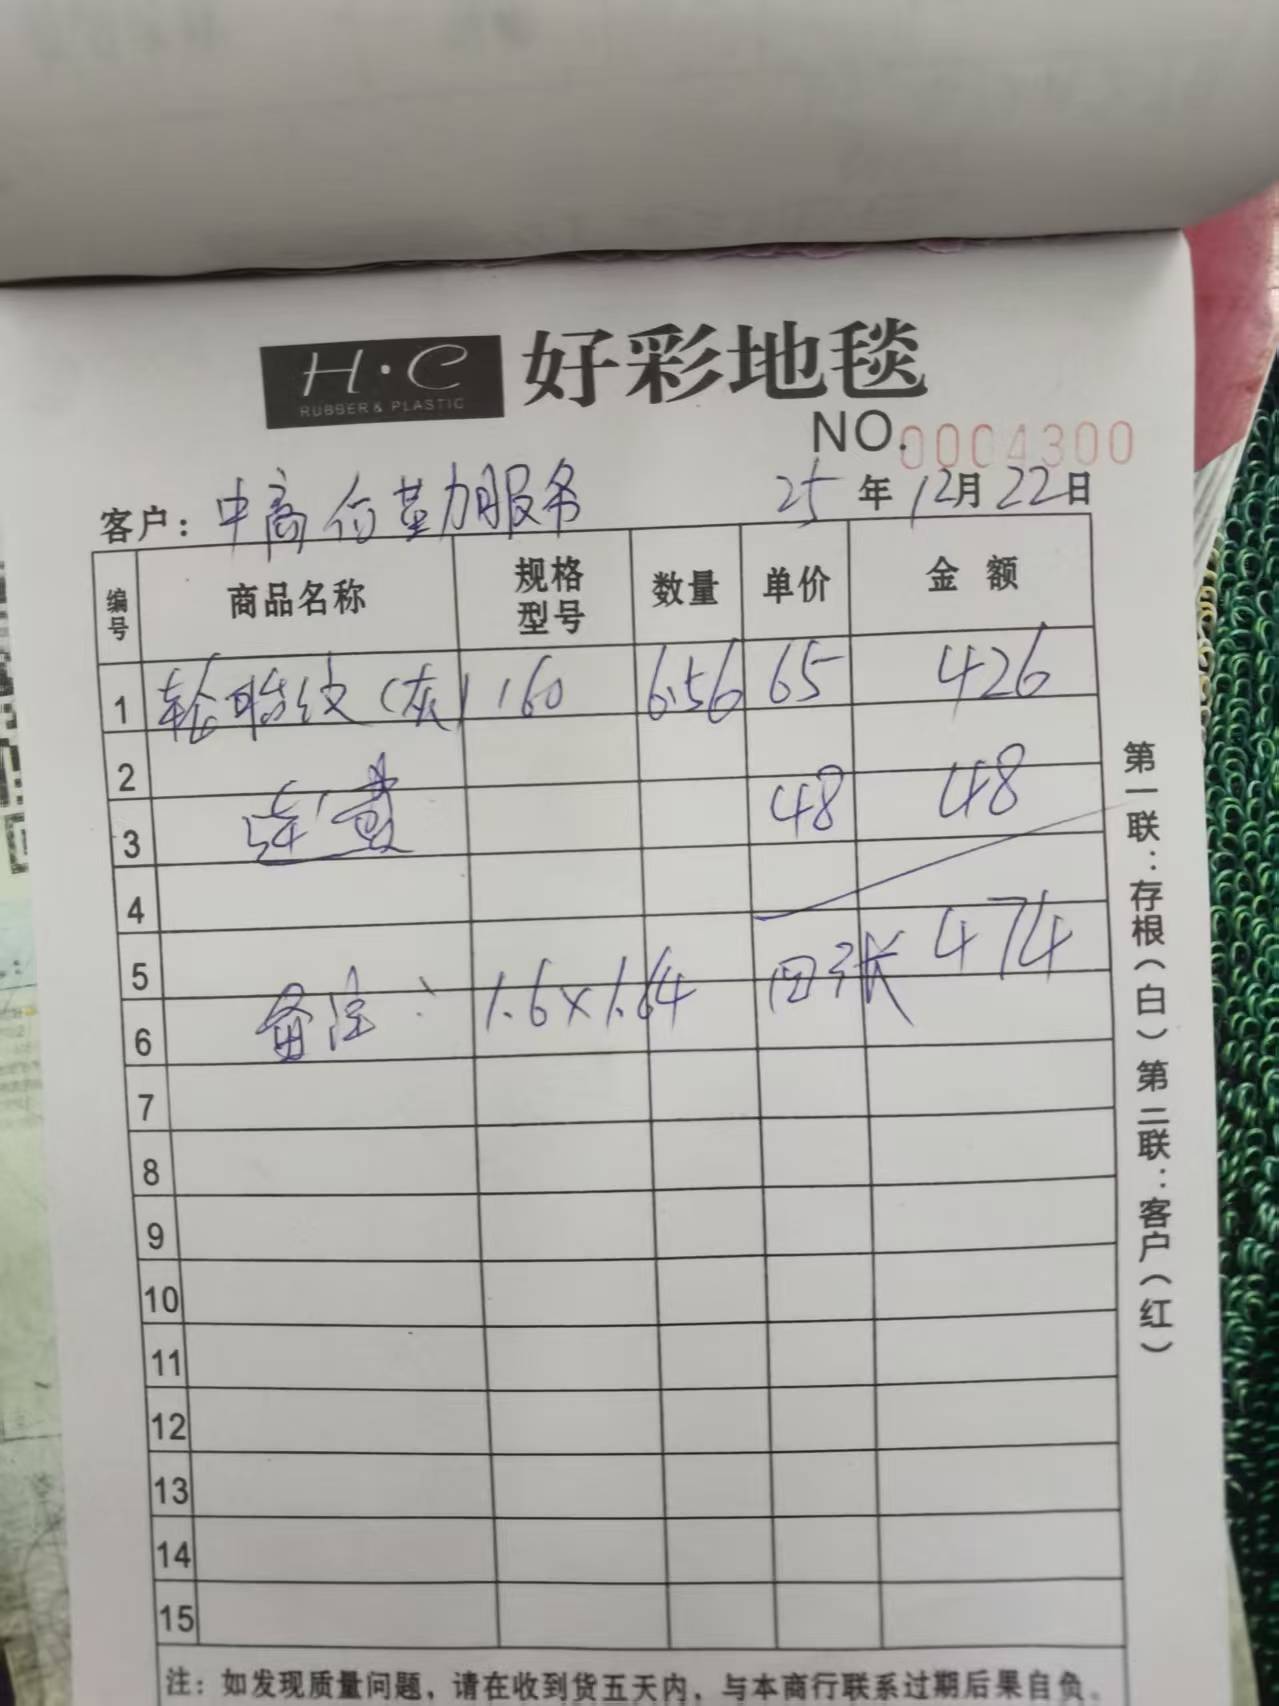 H·C 好彩地毯
RUBBER & PLASTIC
NO.0004300
客户：中商 力服务 25年12月22日
编号 商品名称 规格型号 数量 单价 金额
1 轮胎纹（灰） 160 6.56 65 426
2
3 运费 48 48
4
5 474
6 备注： 1.6×1.64 四张
7
8
9
10
11
12
13
14
15
注：如发现质量问题，请在收到货五天内，与本商行联系过期后果自负。
第一联：存根（白）第二联：客户（红）